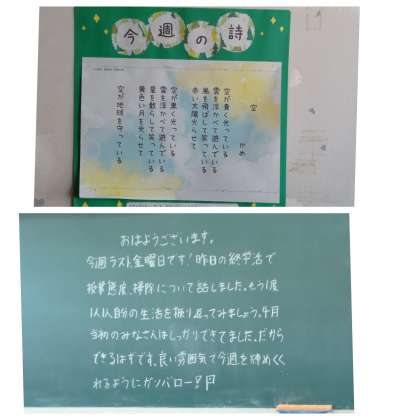 今週の詩
空
かめ
空が青く光っている
雲を浮かべて遊んでいる
風を飛ばして笑っている
赤い太陽光らせて
空が黒く光っている
雲を浮かべて遊んでいる
星を散らして笑っている
黄色い月を光らせて
空が地球を守っている
おはようございます。
今週ラスト金曜日です!昨日の終学活で
授業態度、掃除について話しました。もう1度
1人1人自分の生活を振り返ってみましょう。4月
当初のみなさんはしっかりできてました。だから
できるはずです。良い雰囲気で今週を締めくく
れるようにガンバロー!